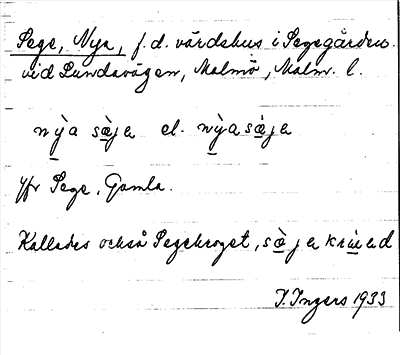 Sege, Nya, f.d. värdshus i Segegården
vid Lundavägen, Malmö, Malm. l.
nỳa sæ̀jа el. nỳasæ̀ja
Jfr Sege, Gamla.
Kallades också Segekroget, sæ̀ja
I. Ingers 1933